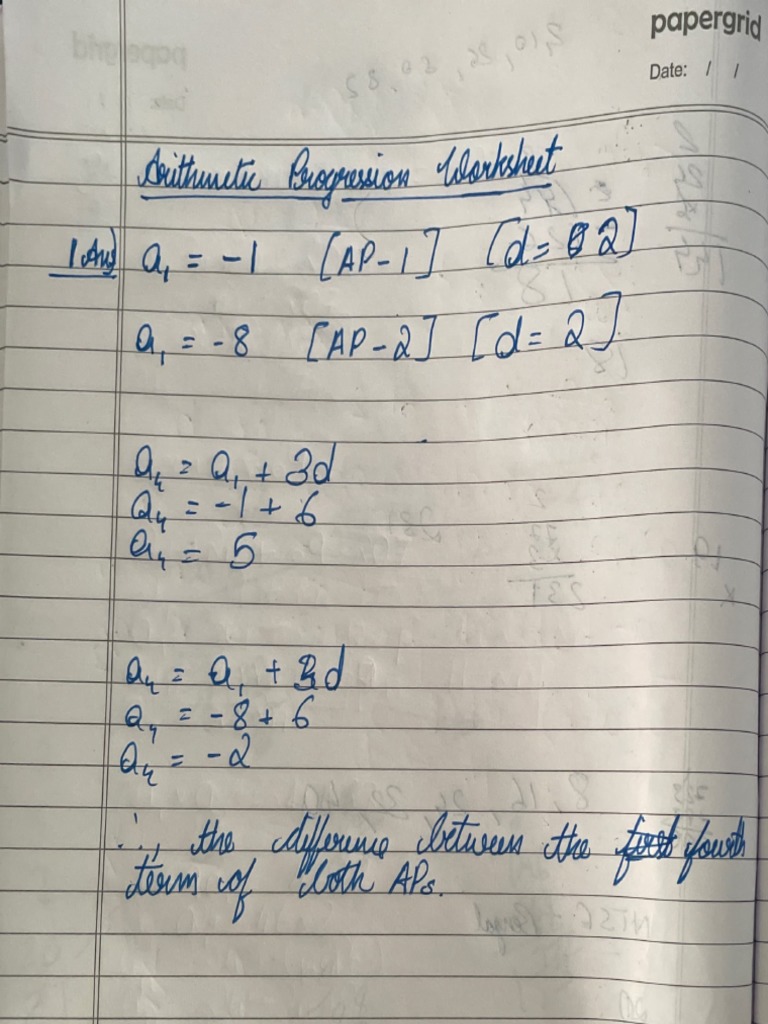 papergrid
Date: / /
Arithmetic Progression Worksheet
1 Ans) a₁ = -1 [AP-1] [d= 2]
a₁ = -8 [AP-2] [d= 2]
a₄ = a₁ + 3d
a₄ = -1 + 6
a₄ = 5
a₄ = a₁ + 3d
a₄ = -8 + 6
a₄ = -2
∴, the difference between the first fourth
term of both APs.